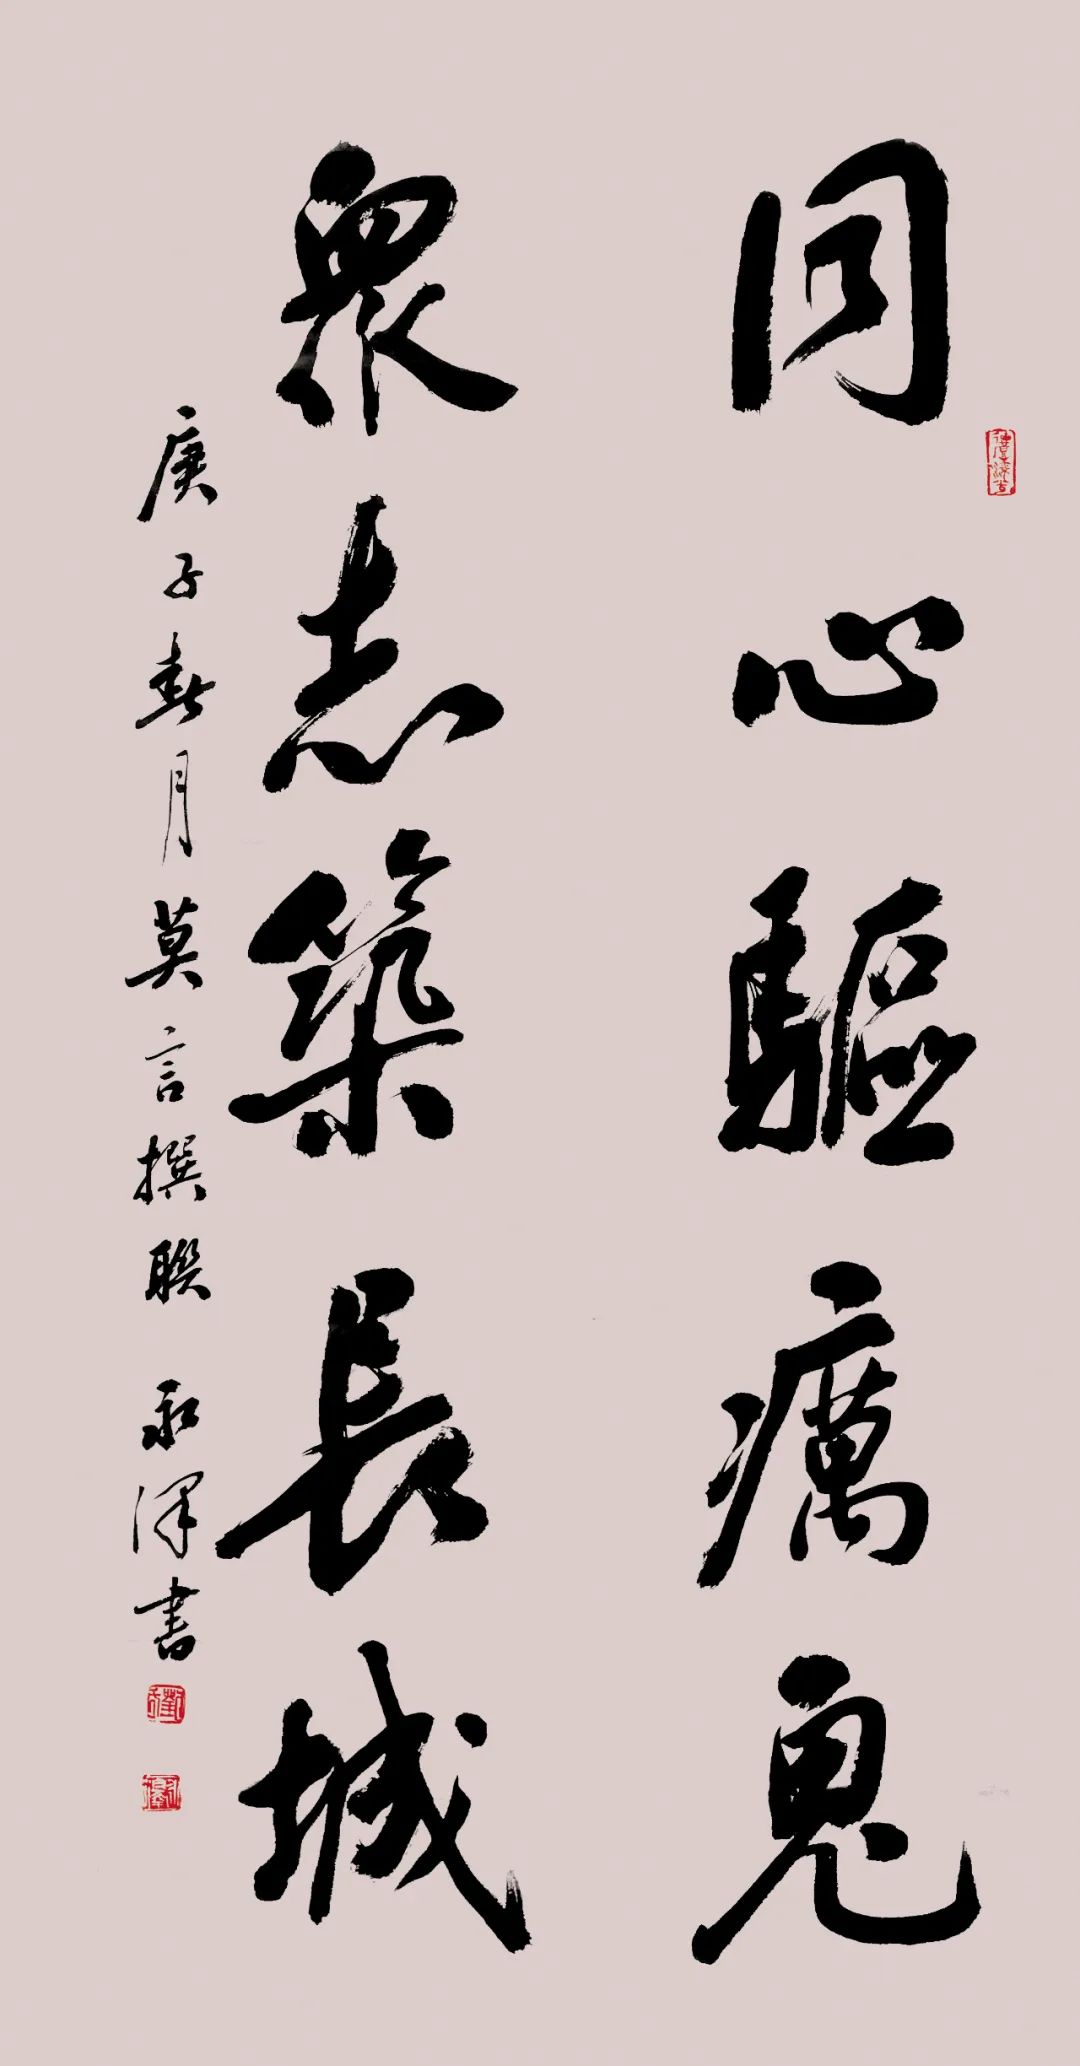 同心驅癘鬼
衆志築長城
庚子春月莫言撰聯永澤書